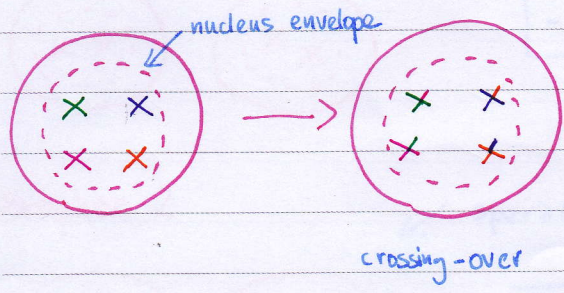 nucleus envelope
crossing-over